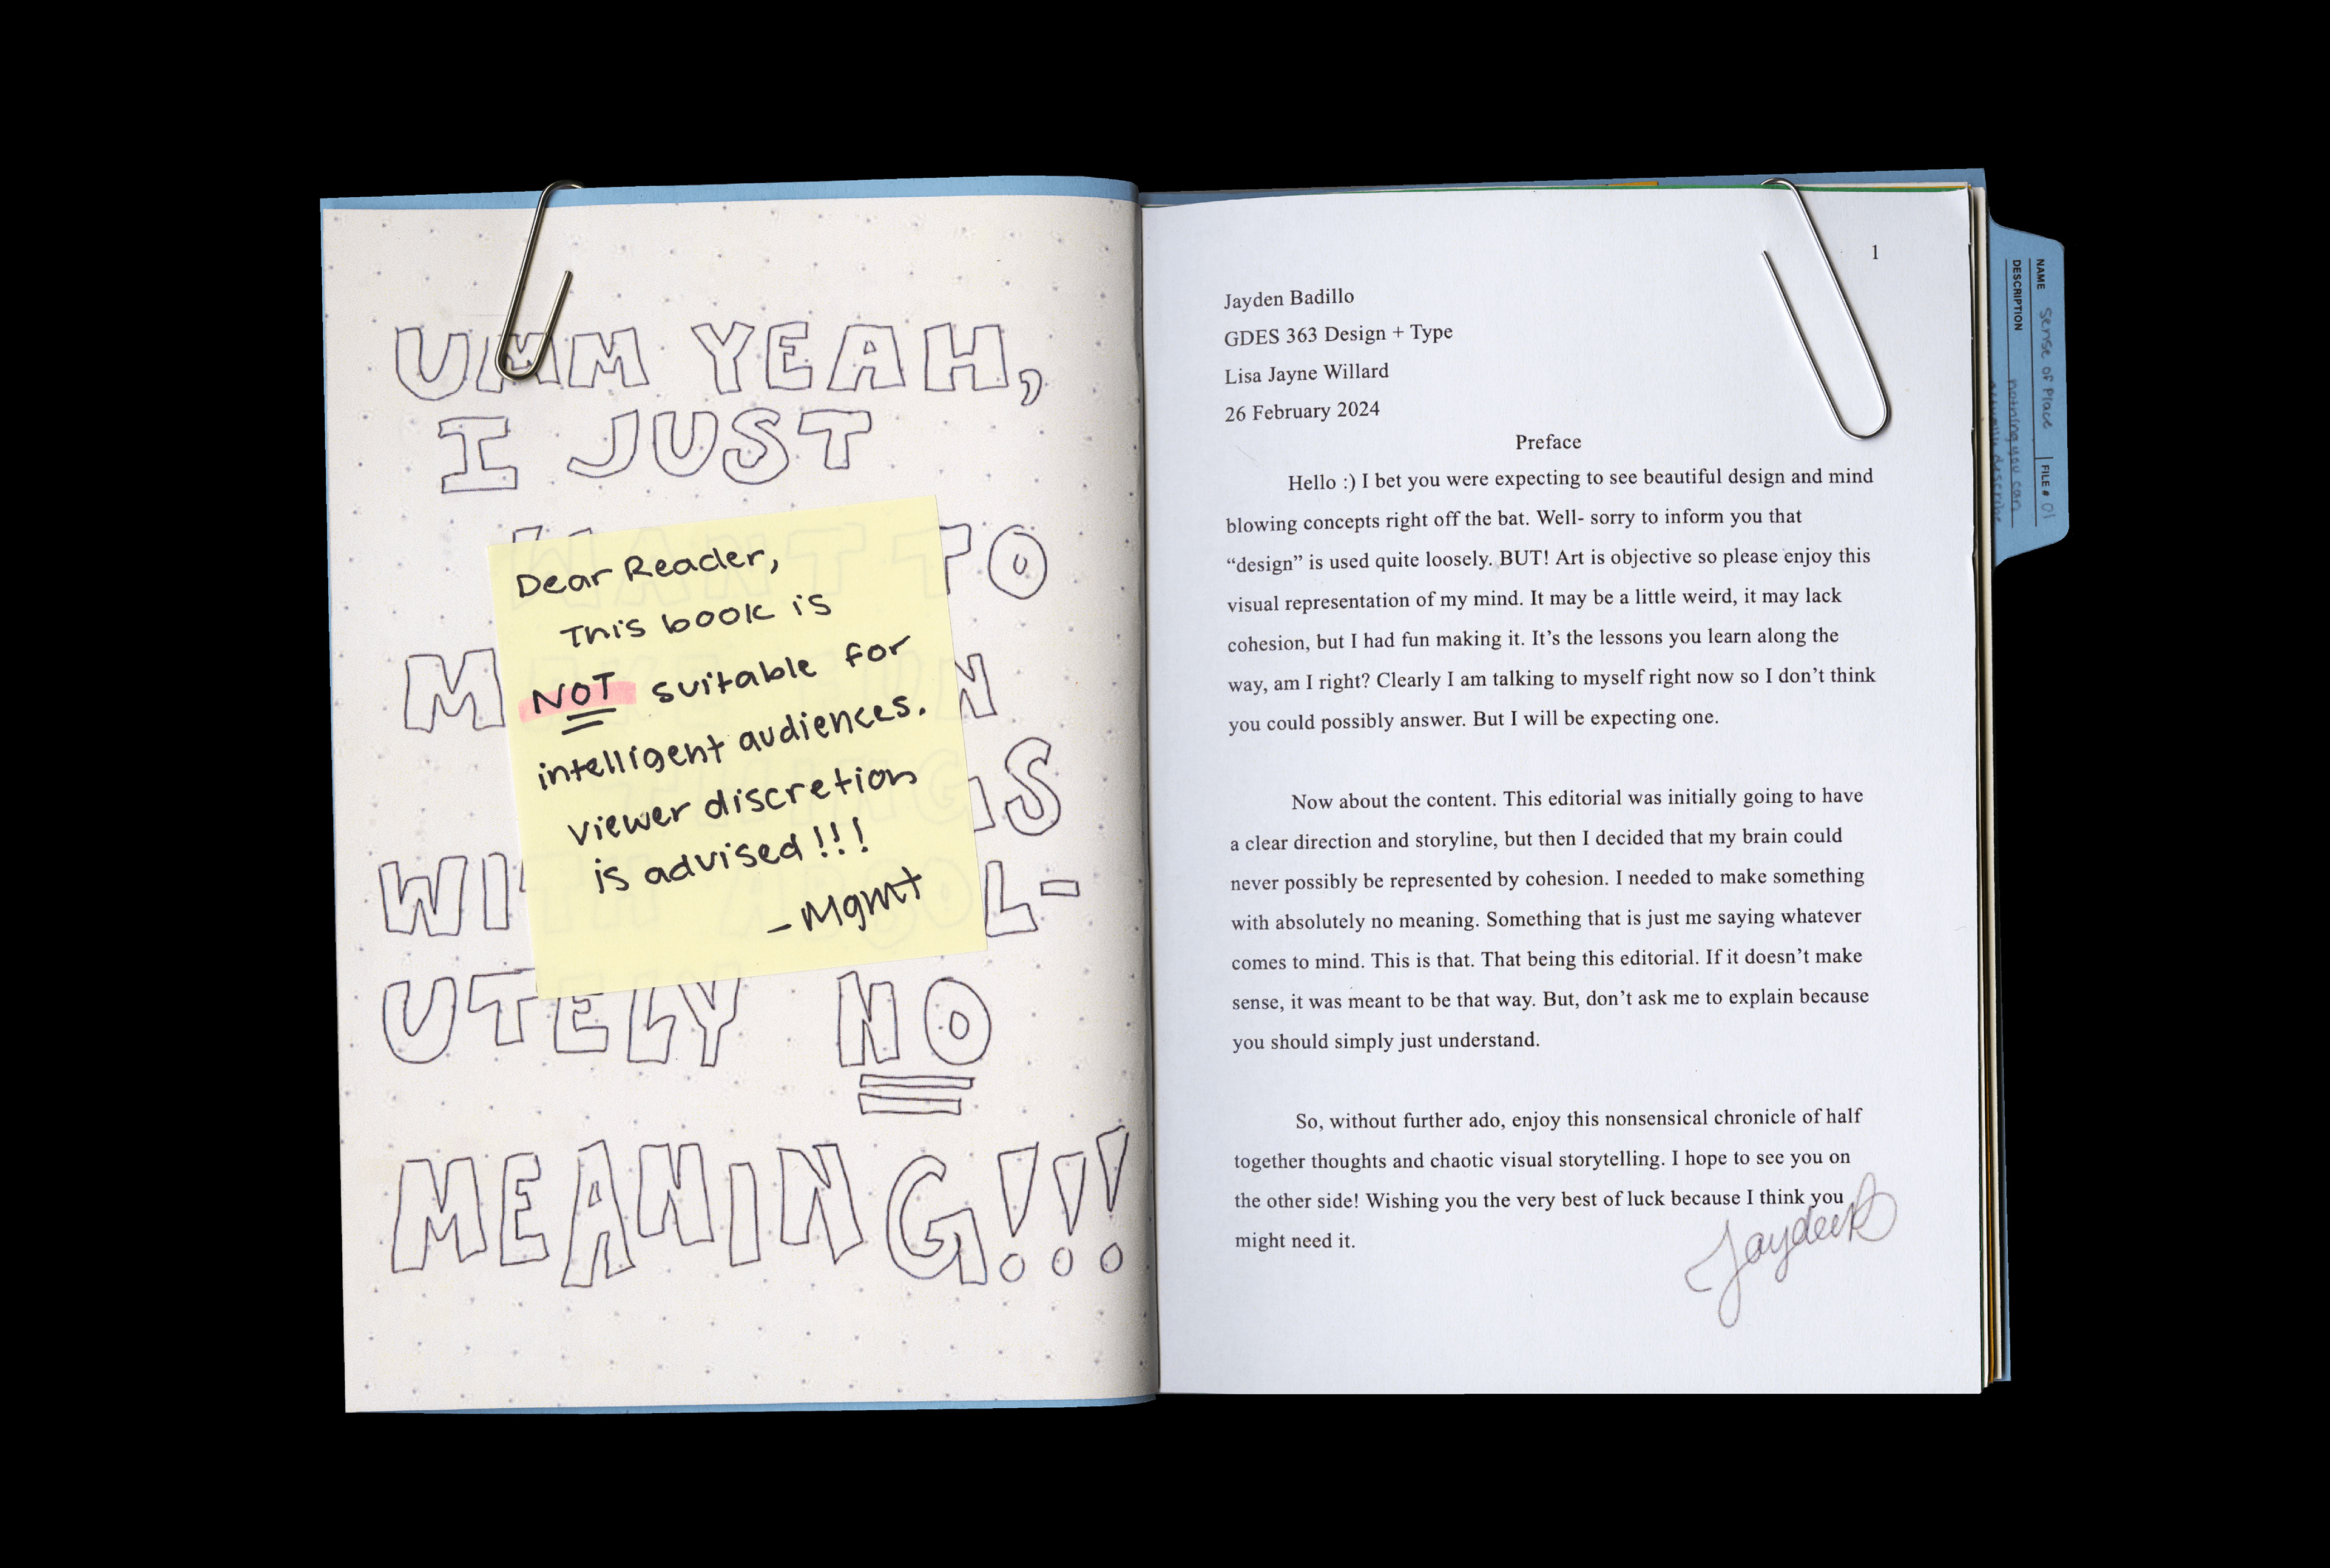 UMM YEAH,
I JUST
WANT TO
MAKE FUN
THINGS
WITH ABSOL-
UTELY NO
MEANING!!!
Dear Reader,
This book is
NOT suitable for
intelligent audiences.
viewer discretion
is advised!!!
-Mgmt
1
Jayden Badillo
GDES 363 Design + Type
Lisa Jayne Willard
26 February 2024
Preface
Hello :) I bet you were expecting to see beautiful design and mind
blowing concepts right off the bat. Well- sorry to inform you that
“design” is used quite loosely. BUT! Art is objective so please enjoy this
visual representation of my mind. It may be a little weird, it may lack
cohesion, but I had fun making it. It’s the lessons you learn along the
way, am I right? Clearly I am talking to myself right now so I don’t think
you could possibly answer. But I will be expecting one.
Now about the content. This editorial was initially going to have
a clear direction and storyline, but then I decided that my brain could
never possibly be represented by cohesion. I needed to make something
with absolutely no meaning. Something that is just me saying whatever
comes to mind. This is that. That being this editorial. If it doesn’t make
sense, it was meant to be that way. But, don’t ask me to explain because
you should simply just understand.
So, without further ado, enjoy this nonsensical chronicle of half
together thoughts and chaotic visual storytelling. I hope to see you on
the other side! Wishing you the very best of luck because I think you
might need it.
JaydenB
NAME Sense of Place FILE # 01
DESCRIPTION nothing you can
actually describe